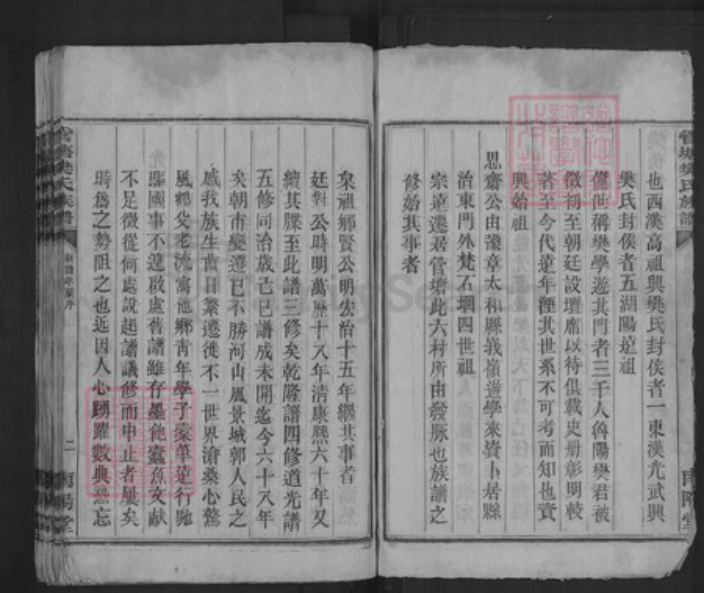 也西漢高祖興樊氏封侯者一東漢光武興
樊氏封侯者五湖陽遠祖
儵世稱樊學遊其門者三千人魯陽樊君被
徵初至朝廷設壇席以待俱載史册彰明較
著至今代遠年湮其世系不可考而知也實
興始祖
思齋公由豫章太和縣義嶺遊學來資卜居縣
治東門外梵石垇四世祖
宗遠遷居管塘此六村所由發脉也族譜之
修始其事者
泉祖鄉賢公明宏治十五年繼其事者
廷對公時明萬歷十八年清康熙六十年又
續其牒至此譜三修矣乾隆譜四修道光譜
五修同治歲己巳譜成未開迄今六十八年
矣朝市變遷已不勝河山風景城郭人民之
感我族生齒日繁遷徙不一世界滄桑心驚
風鶴父老流寓他鄉青年學子橐筆遠行馳
驅國事不遑啟處舊譜雖存墨飽蠹魚文獻
不足徵從何處說起譜議修而中止者屢矣
時為之勢阻之也近因人心踴躍數典恐忘
管塘樊氏族譜
二
南陽堂